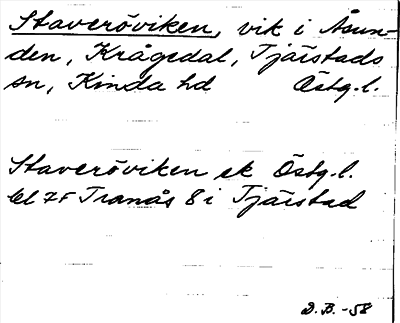 Staveröviken, vik i Åsun-
den, Krågedal, Tjärstads
sn, Kinda hd Östg.l.
Staveröviken ek Östg.l.
bl 7F Tranås 8 i Tjärstad
D.B. -58